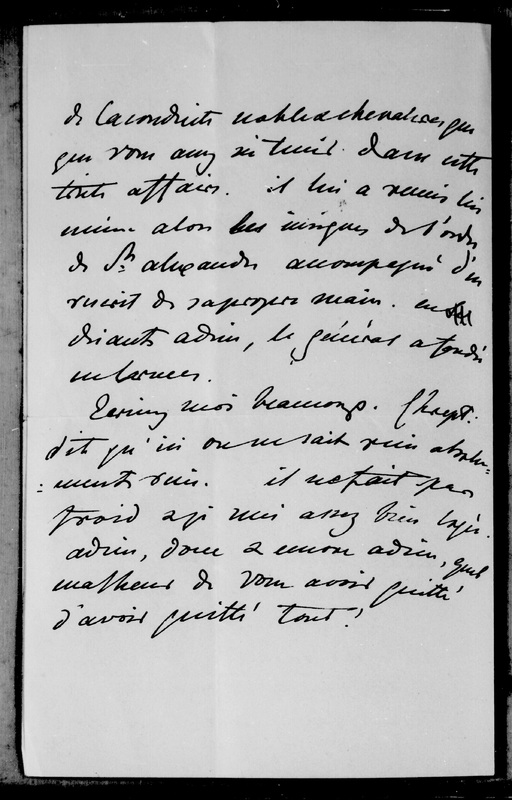 de la conduite noble & chevaleresque
que vous avez su tenir. dans cette
triste affaire. il lui a remis lui
même alors les insignes de l'ordre
de St. alexandre accompagné d'un
rescrit de sa propre main. en
disant adieu, le général a fondu
en larmes.
Ecrivez moi beaucoup.
dit qu'ici on ne sait rien absolu-
-ment rien. il ne fait pas
froid & je suis assez bien logé.
adieu, donc & encore adieu, quel
malheur de vous avoir quitté
d'avoir quitté tout!